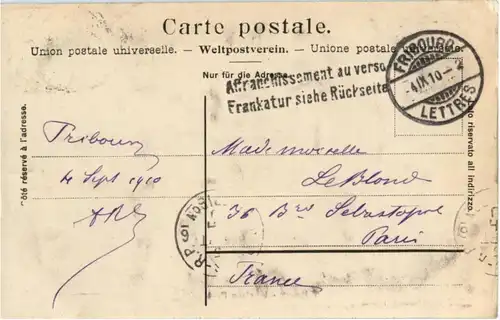 Carte postale.
Union postale universelle. – Weltpostverein. – Unione postale
Nur für die Adresse.
Affranchissement au verso
Frankatur siehe Rückseite
FRIBOURG
4 IX 10
LETTRES
Côté réservé à l'adresse.
riservato all'indirizzo.
Fribourg
4 Sept 1910
Mademoiselle
LeBlond
36 Bvd Sebastopol
Paris
France